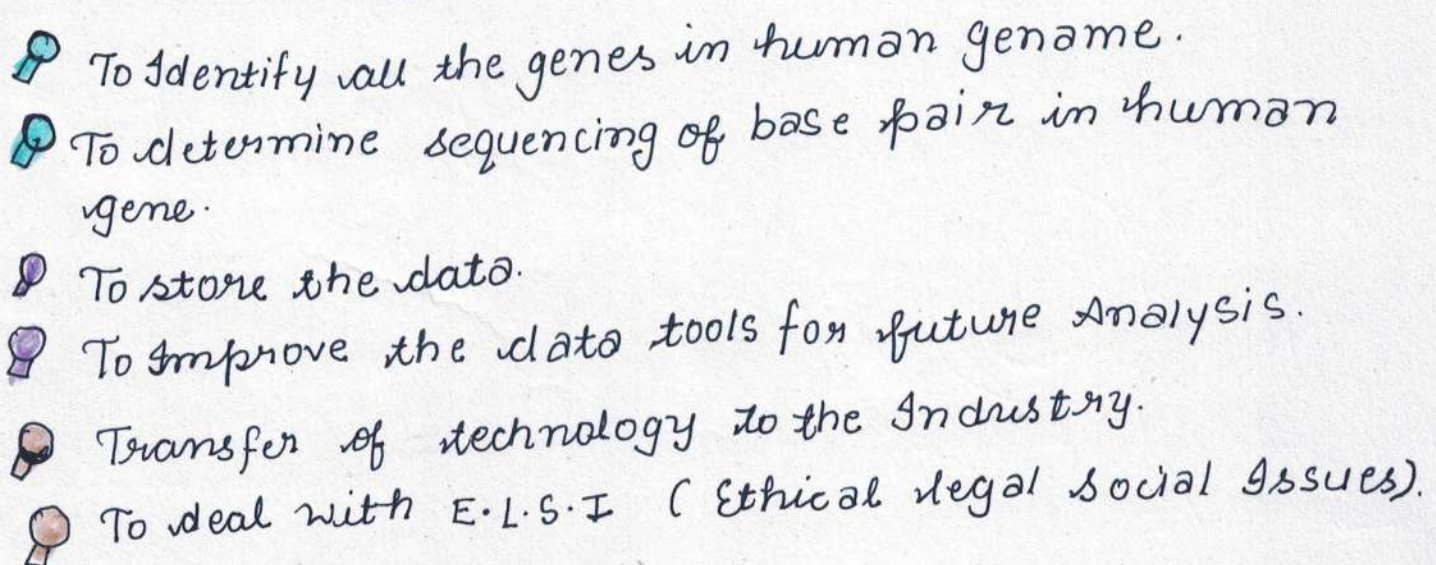 To Identify all the genes in human gename.
To determine sequencing of base pair in human
gene.
To store the data.
To Improve the data tools for future Analysis.
Transfer of technology to the Industry.
To deal with E.L.S.I ( Ethical legal social Issues).